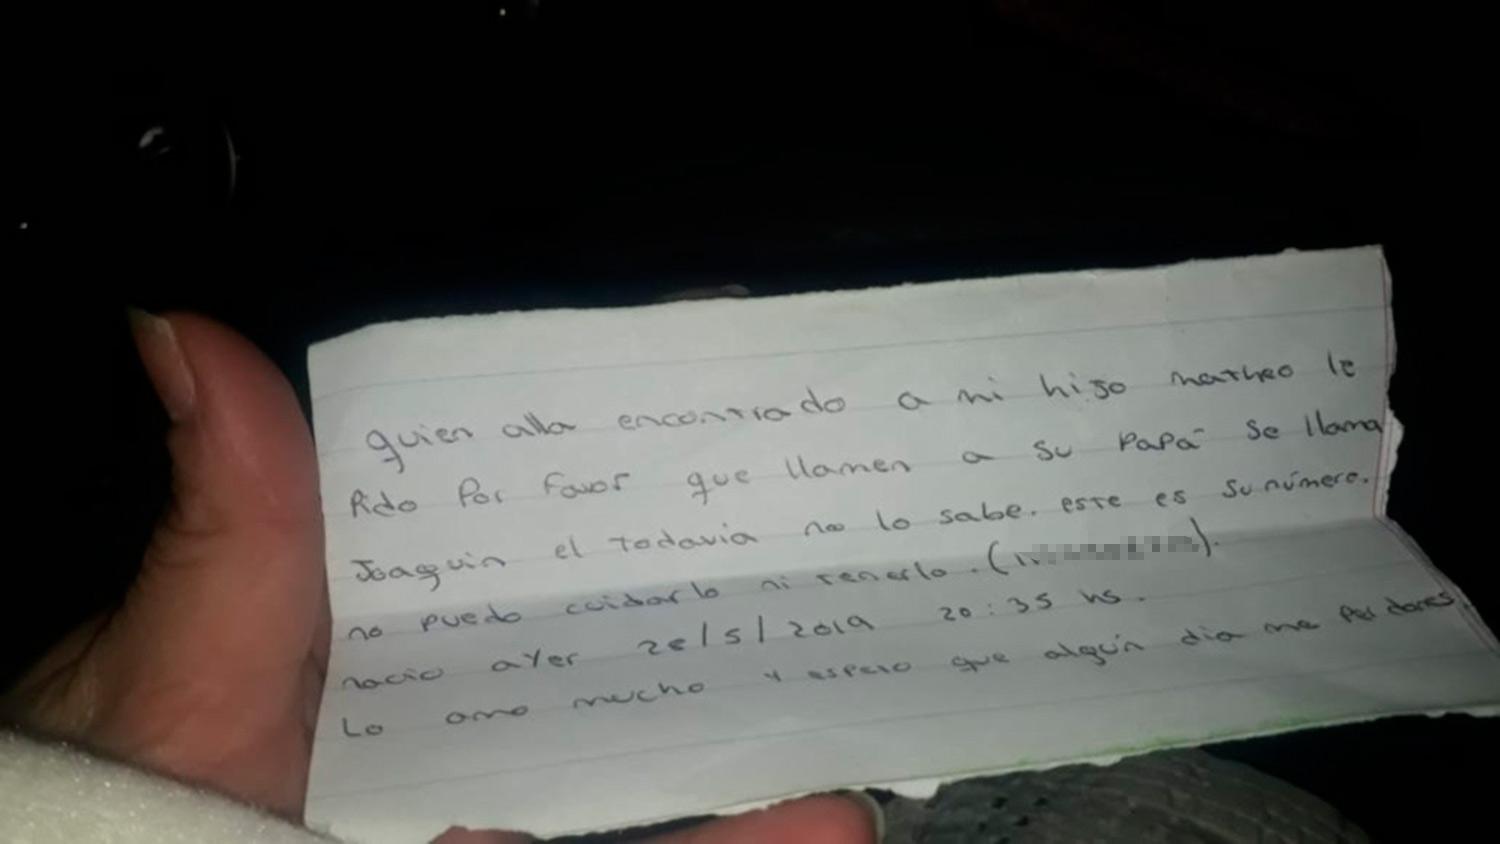 quien alla encontrado a mi hijo matheo le
Pido Por Favor que llamen a su PaPá se llama
Joaquin el todavia no lo sabe. este es su número.
no puedo cuidarlo ni tenerlo. (1
nacio ayer /5/2019 20:35 hs.
Lo amo mucho y espero que algún dia me perdones